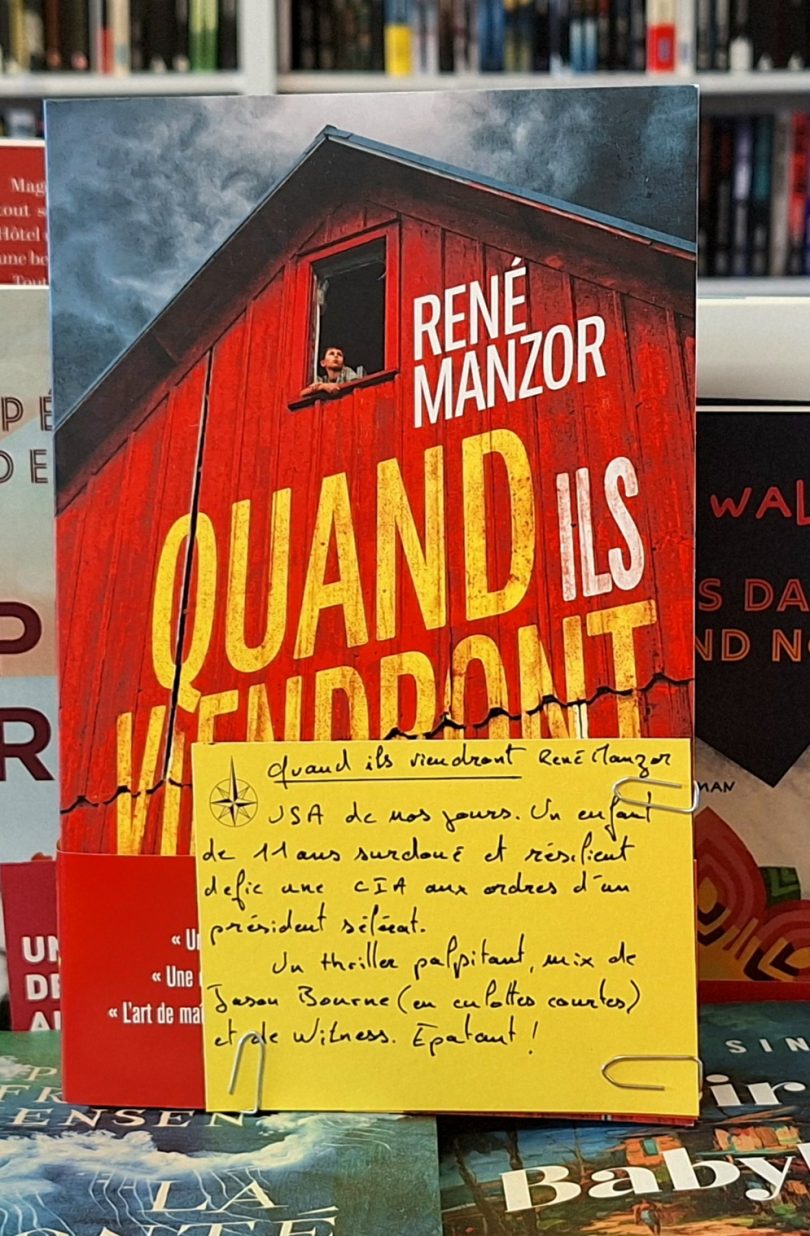 RENÉ
MANZOR
QUAND ILS
VIENDRONT
Quand ils viendront René Manzor
USA de nos jours. Un enfant
de 11 ans surdoué et résilient
défie une CIA aux ordres d'un
président sélérat.
Un thriller palpitant, mix de
Jason Bourne (en culottes courtes)
et de Witness. Epatant !
« U
« Une
« L'art de ma
Mag
tout s
Hôtel
une be
Tout
P É
D E
P
R
UN
DE
A
WAL
S DA
ND N
MAN
P
FR
ENSEN
LA
ONTÉ
SIN
ir
Baby